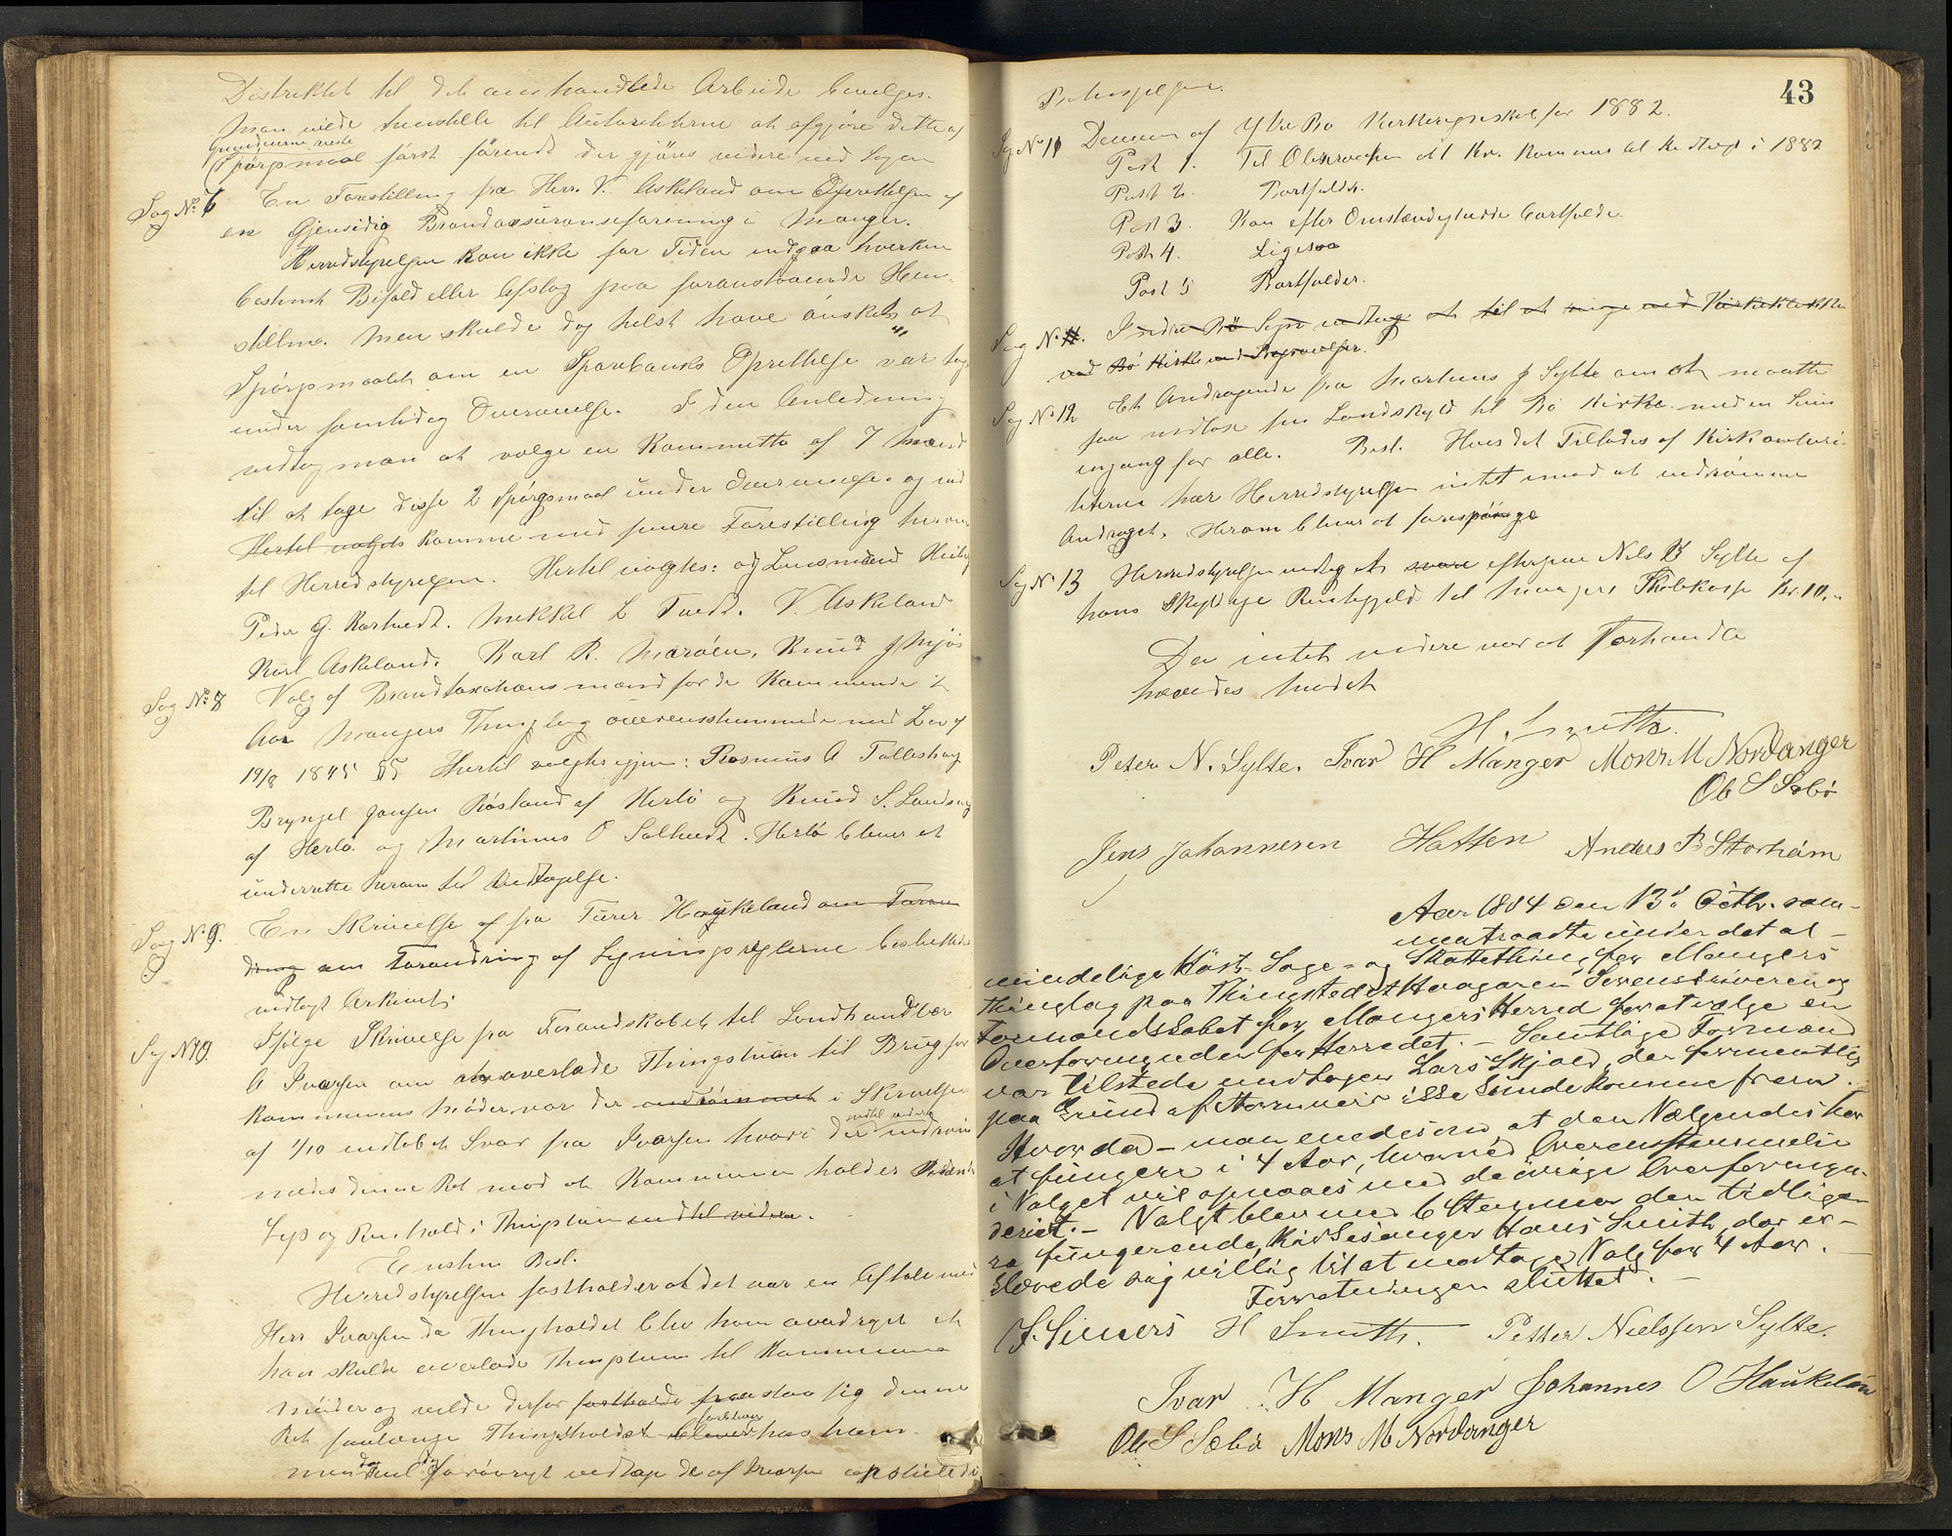 Distriktet til det omhandlede Arbeide bevilges.
Man vilde henstille til Autoriteterne at afgjøre dette
Spörgsmaal först förend der gjöres videre ved Sagen
Sag No 7 En Forestilling fra Herr V. Askeland om Oprettelsen af
en Gjensidig Brandassuranseforening i Manger.
Herredstyrelsen kan ikke for Tiden indgaa hverken
bestemt Bifald eller Afslag paa foranstaaende Hen-
stilling. Men skulde dog helst have önsket at
Spörgsmaalet om en Sparebanks Oprettelse var tag
under samtidig Overveielse. I den Anledning
vedtog man at vælge en Kommitte af 7 Mænd
til at tage disse 2 Spörgsmaal under Overveielse og ind
Hertil valgtes komme med senere Forestilling herom
til Herredstyrelsen. Hertil valgtes: Lensmand
Peder G. Kartvedt. Mikkel L Tvedt. V. Askeland
Karl Askeland. Karl R. Maröen, Knud J Mjös
Sag No 8 Valg af Brandtaxationsmænd for de kommende
Aar Mangers Thinglag overensstemmende med Lov af
19/8 1845 §5 Hertil valgtes igjen: Rasmus A Tolleshaug
Brynjel Jansen Rösland af Herlö og Knud S.
af Herlö og Martinus O Solhei. Herlö blever at
underrette herom til Vedtagelse.
Sag No 9. En Skrivelse af fra Turer Haukeland om Foran
dring om Forandring af Ligningsreglerne besluttedes
vedlagt Arkivet.
Sag No 10. Ifölge Skrivelse fra Formandskabet til Landhandler
A Ivarsen om at overlade Thingstuen til Brug for
Kommunens Möder, var der indkommet i Skrivelse
af 1/10 indlöbet Svar fra Ivarsen hvori der indröm
medes denne Ret mod at Kommunen holder
Lys og Renhold i Thingstuen indtil videre.
Enstm Besl.
Herredstyrelsen fastholder at det var en Aftale med
Herr Ivarsen da Thingholdet blev ham overdraget at
han skulde overlade Thingstuen til Kommunens
möder og vilde derfor fastholde forestaa sig denne
Ret saalænge Thingholdet blever has ham.
43
Sag No 11 Decision af Ytre Bö Kirkeregnskab for 1882.
Post 1. Til Observation
Post 2. Bortfalder.
Post 3. Kan efter Omstændighederne bortfalde.
Post 4. Ligesaa
Post 5 Bortfalder.
Sag No 11. Indre Bö Sogn
ved Bö Kirke ved Begravelser.
Sag No 12 Et Andragende fra Martinus J Sylte om at maatte
faa indlöse sin Landskyld til Bö Kirke med en Sum
engang for alle. Besl. Hvis det Tillades af Kirkeautori-
teterne har Herredstyrelsen intet imod at indrömme
Andraget. Herom blever at forespörge
Sag No 13 Herredstyrelsen vedtog at svare eftergive Nils Sylte af
hans Skyldige Restgjeld til Mangers Skolekasse Kr. 10.
Da intet videre var at Forhandle
hævedes Mödet
H. Smith.
Peter N. Sylte. Ivar H Manger Mons M Nordanger
Ole S Sæbö
Jens Johannesen Hatten Anders B Storheim
Aar 1884 den 13de Octbr. sam-
mentraadte under det al-
mindelige Höst- Sage- og Skattething for Mangers
Thinglag paa Thingstedet Haagaren Sorenskriveren og
Formandskabet for Mangers Herred for at vælge en
Overformynder for Herredet. – Samtlige Formænd
var tilstede undtagen Lars Skjold, der formentlig
paa Grund af Stormveir ikke kunde komme frem.
Hvorda – man enedes om at den Vælgendes har
at fungere i 4 Aar, hvorved Overensstemmelse
i Valget vil opnaaes med de övrige Overformyn-
derier. – Valgt blev med 6 Stemmer den tidlige-
re fungerende, Kirkesanger Hans Smith, der er-
klærede sig villig til at modtage Valg for 4 Aar. –
Forretningen sluttet. –
J. Sievers H Smith. Petter Nielssen Sylte.
Ivar H Manger Johannes O Haukeland
Ole S Sæbö Mons M Nordanger